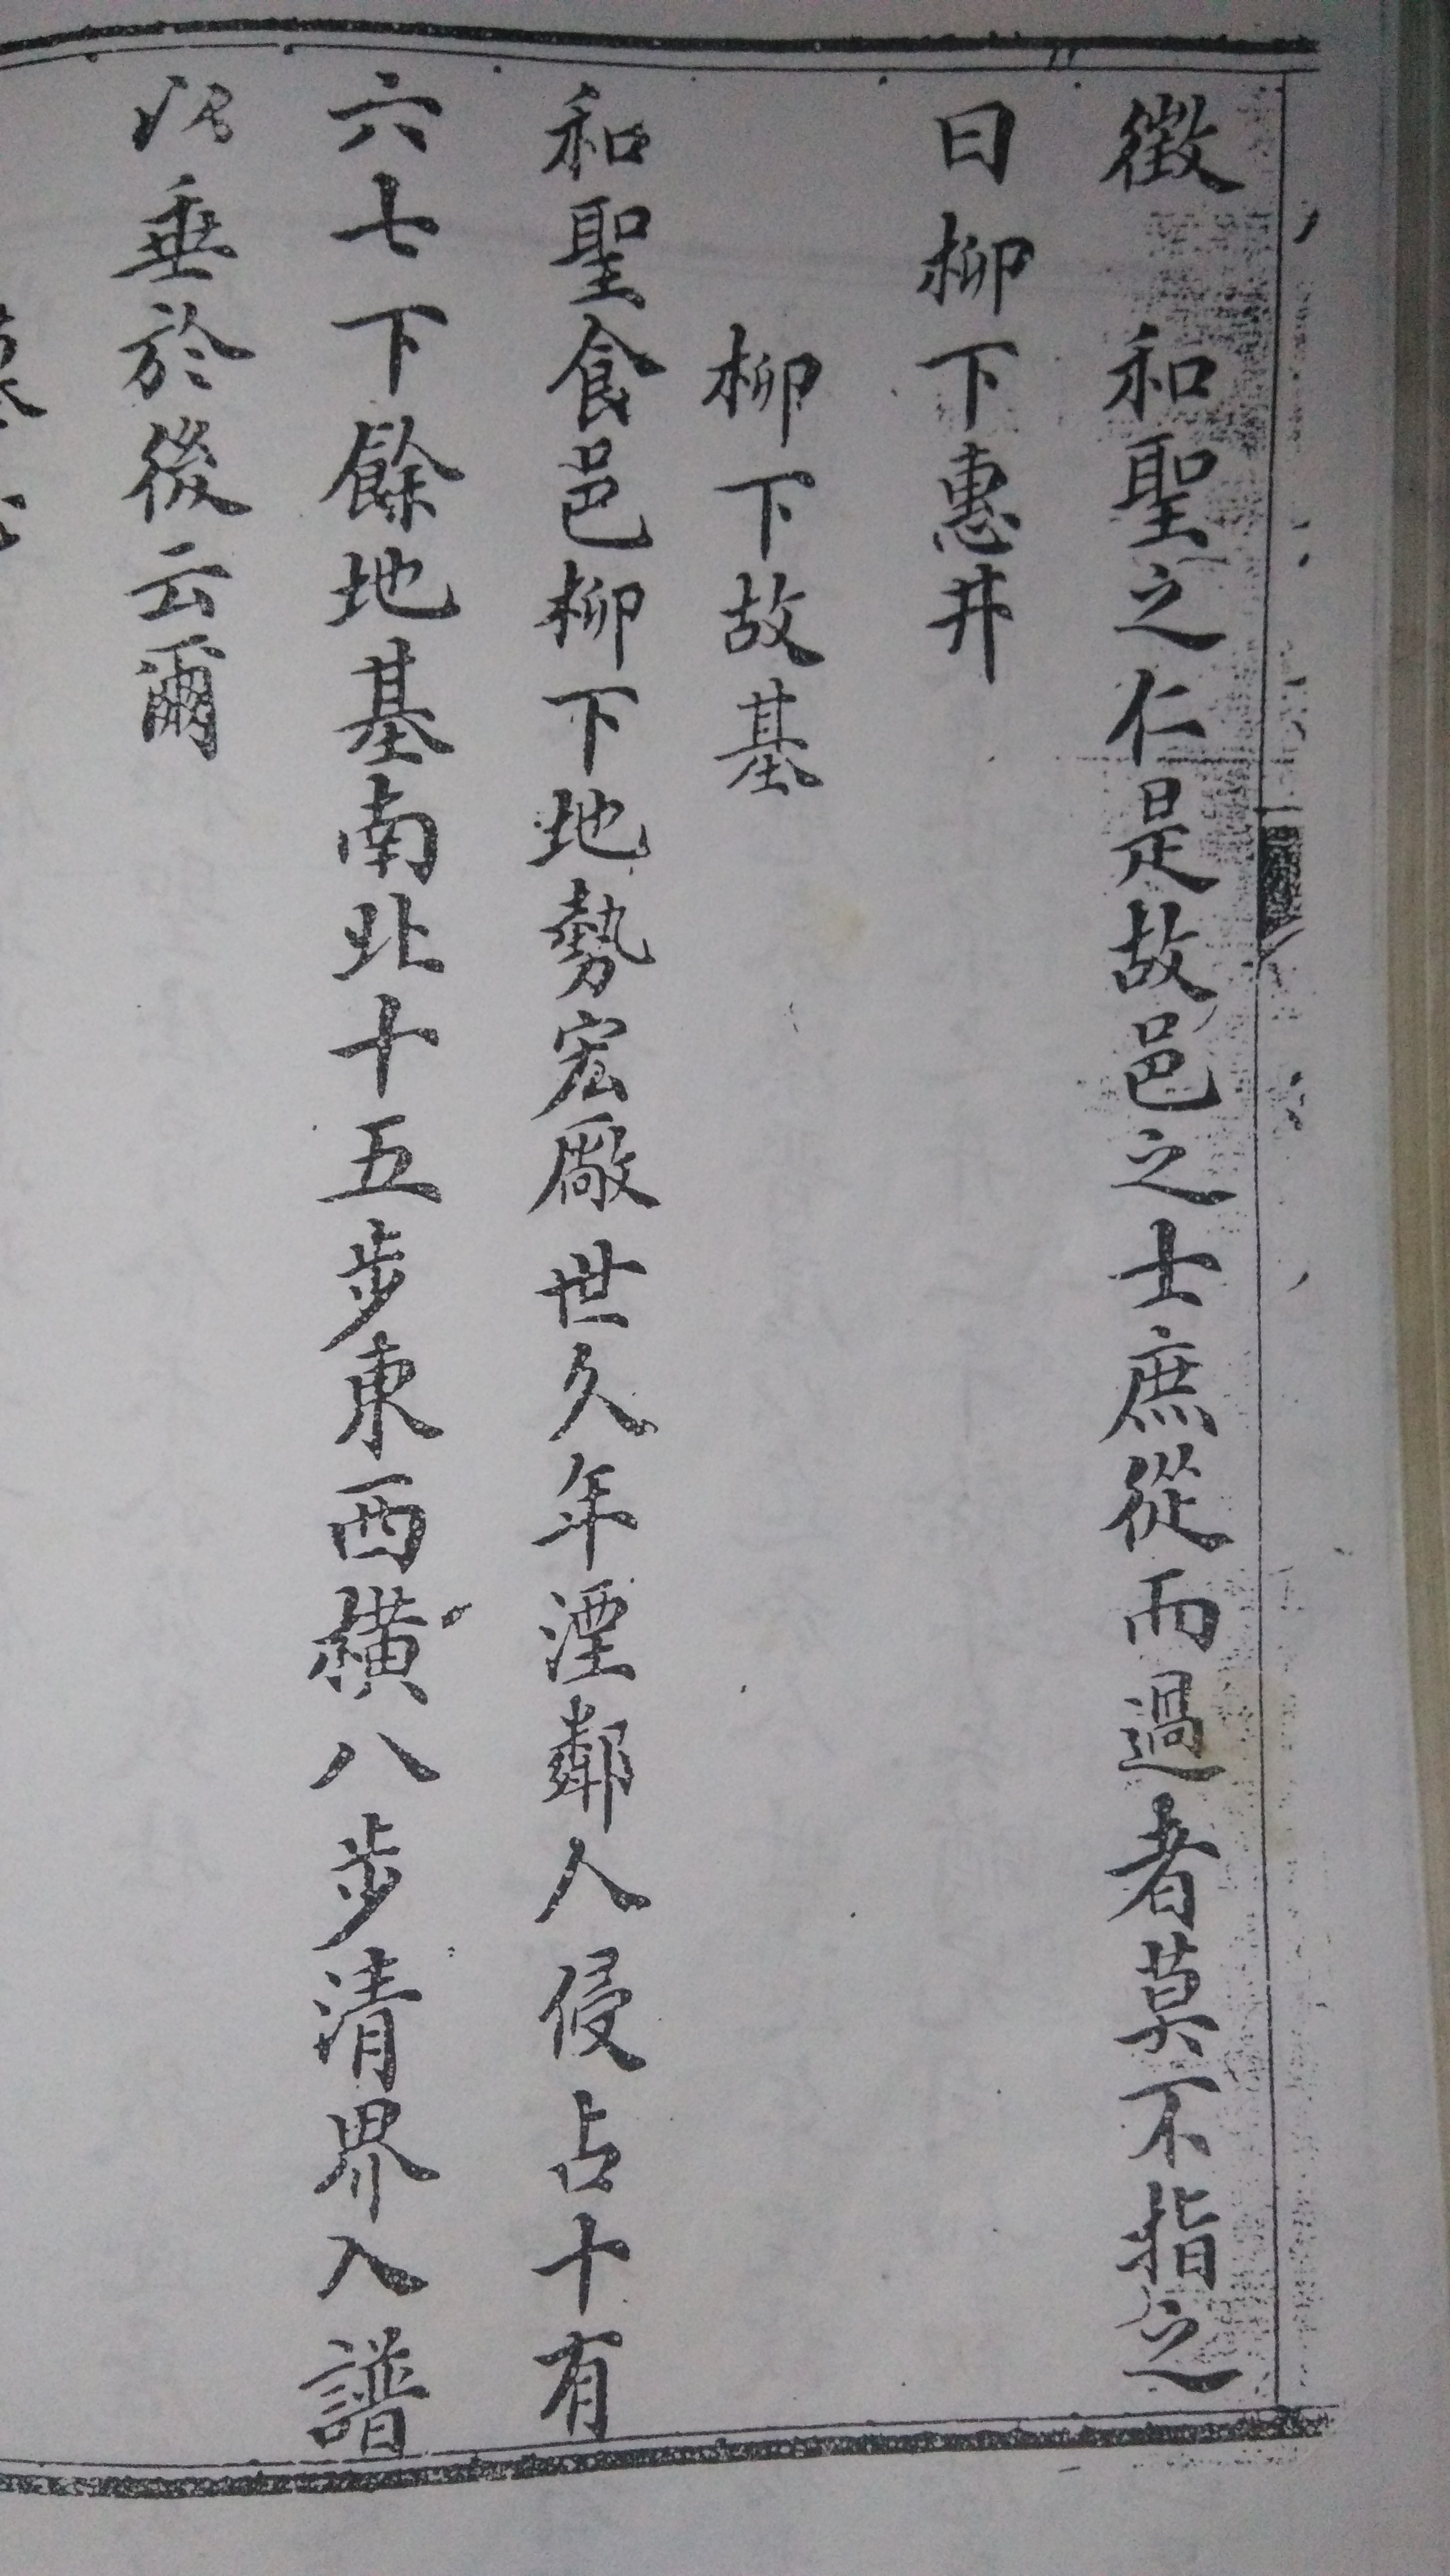 徵 和聖之仁是故邑之士庶從而過者莫不指之
曰柳下惠井
柳下故基
和聖食邑柳下地勢宏厰世久年湮鄰人侵占十有
六七下餘地基南北十五步東西橫八步清界入譜
以垂於後云爾